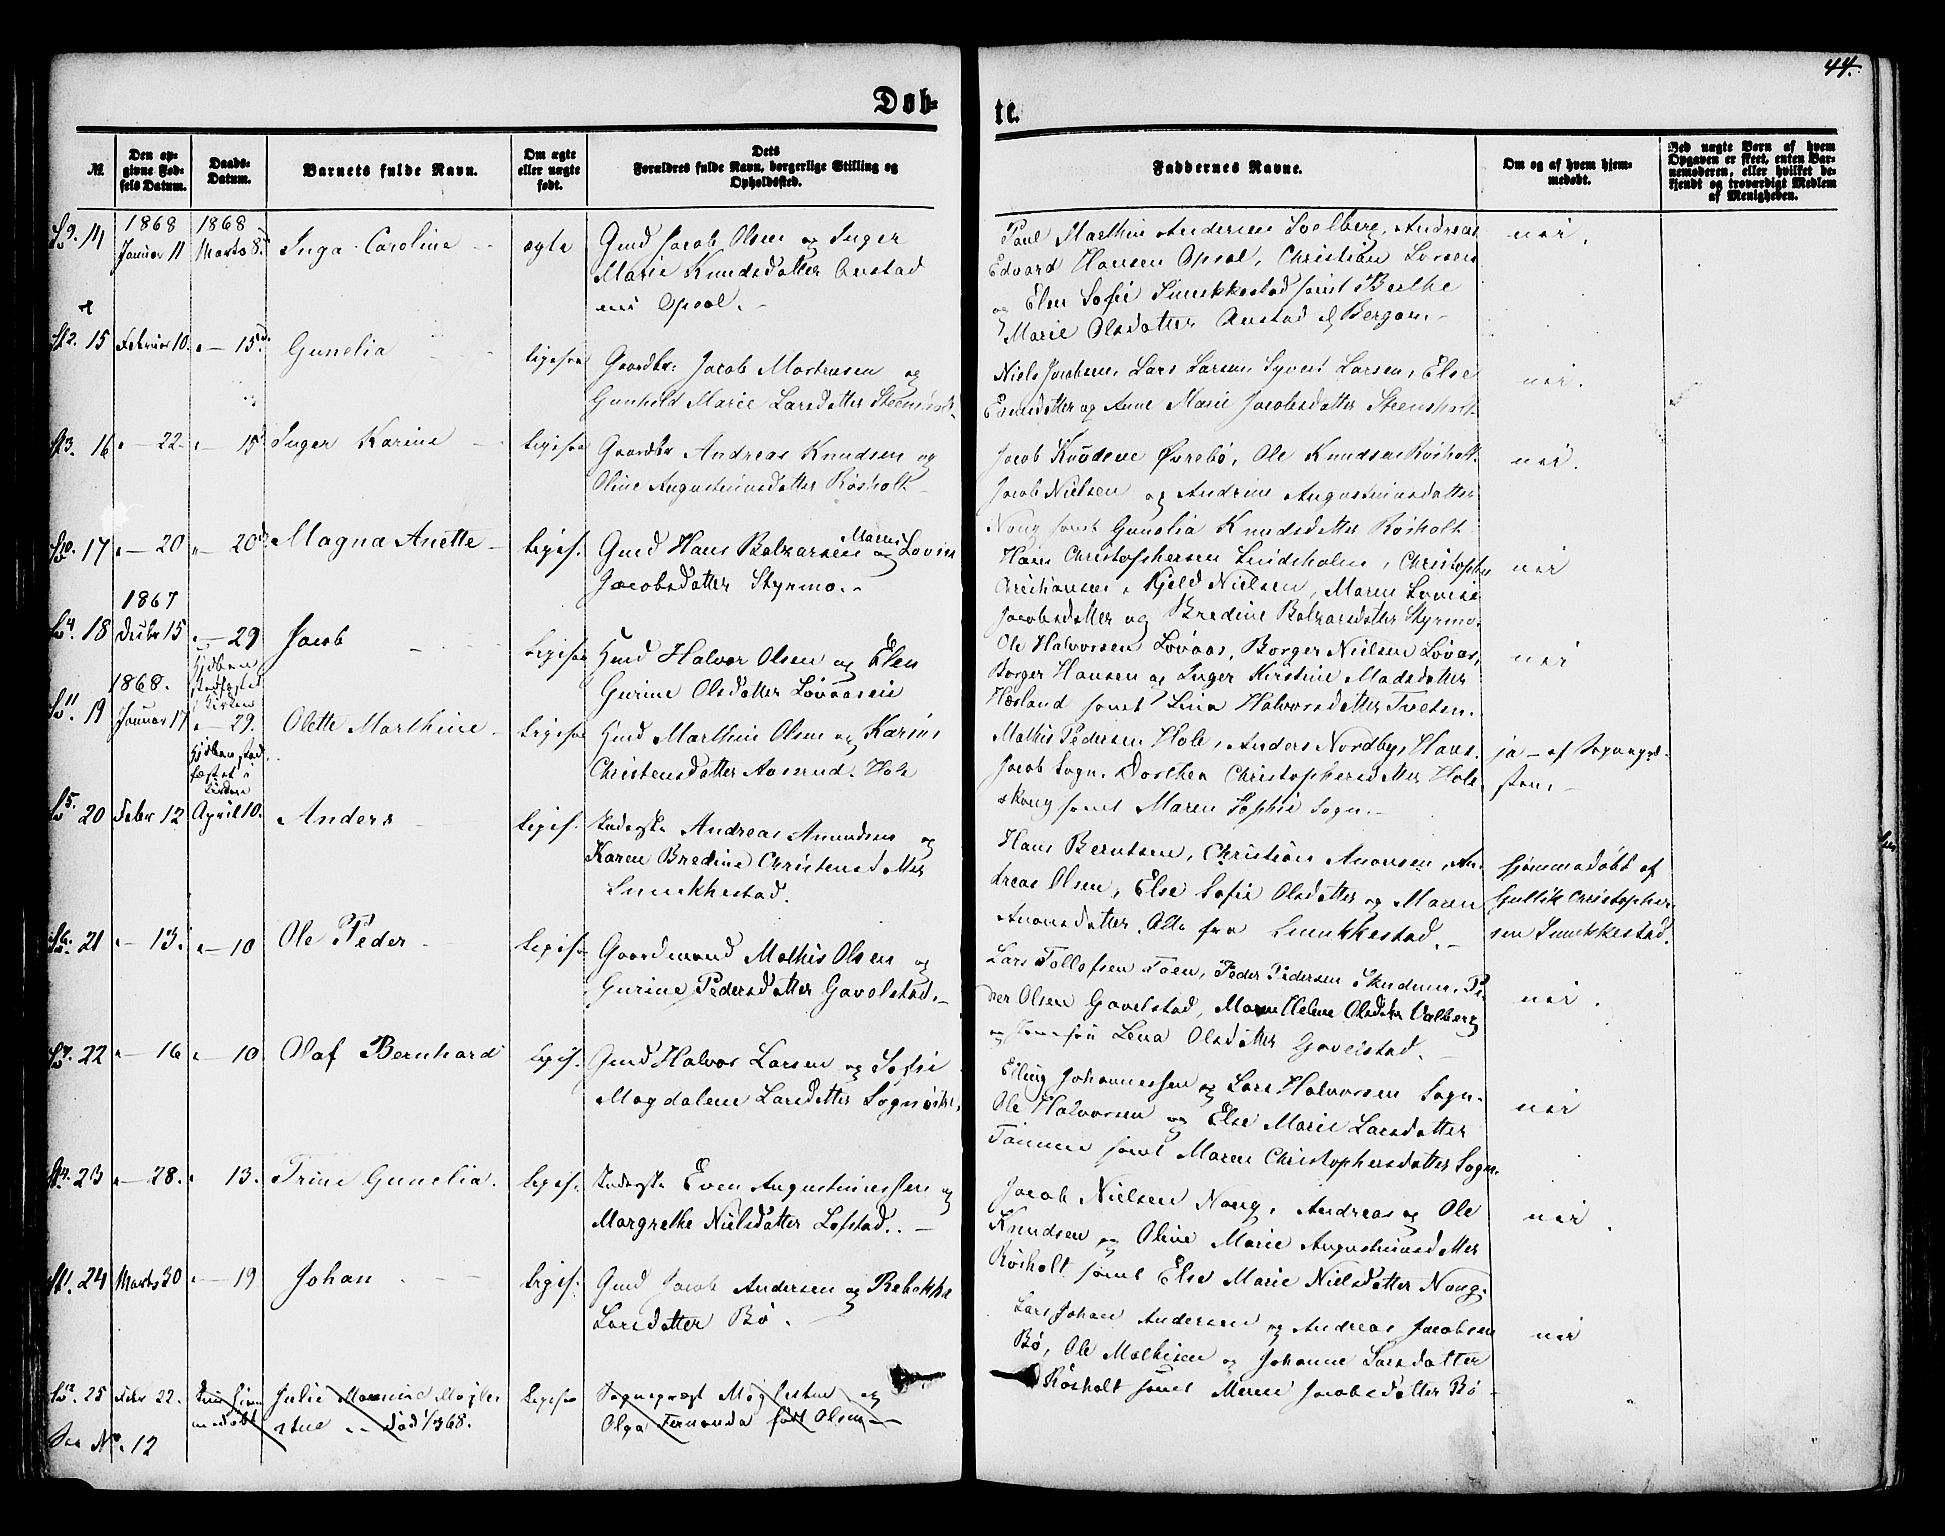 44.
Døb-
te.
№
Den op-
givne Fød-
sels Datum.
Daabs-
Datum.
Barnets fulde Navn.
Om ægte
eller uægte
født.
Dets
Forældres fulde Navn, borgerlige Stilling og
Opholdssted.
Faddernes Navne.
Om og af hvem hjem-
medøbt.
Ved uægte Børn af hvem
Opgaven er skeet, enten Bar-
nemoderen, eller hvilket be-
kjendt og troværdigt Medlem
af Menigheden.
14
1868
Januar 11
1868
Marts 8.
Inga Caroline
ægte
Gmd Jacob Olsen og Inger
Marie Knudsdatter
Opsal.
Paul Marthin Andersen Solberg, Andreas
Edvard Hansen Opsal, Christian Larsen
og Elen Sofie samt Berthe
Marie Olsdatter
nei.
15
Februar 10.
" — 15
Gunelia
ligesaa
Gaardbr. Jacob Mortensen og
Gunhild Marie Larsdatter
Niels Lars Larsen, Syvert Larsen, Else
Evensdatter og Anne Marie Jacobsdatter Steensholt
nei.
16
" — 22
" — 15
Inger Karine
ligesaa
Gaardbr Andreas Knudsen og
Oline Augustinusdatter Røsholt
Jacob Øvrebø, Ole Knudsen Røsholt
Jacob Nielsen og Andrine Augustinusdatter
Noug samt Gunelia Knudsdatter Røsholt
nei.
17
" — 20
" — 20
Magna Anette
liges.
Gmd Hans Balzarsen og Maren Lovise
Jacobsdatter Styrmo.
Hans Christophersen Lindsholm, Christopher
Christiansen, Kjeld Nielsen, Maren Lovise
Jacobsdatter og Bredine Balzarsdatter Styrmo.
nei
18
1867
Decbr 15
" — 29
Hjdben
stadfæstet
i Kirken
Jacob
ligesaa
Hmd Halvor Olsen og Elen
Gurine Olsdatter Løvaaseie
Ole Halvorsen Løvaas, Borger Nielsen Løvaas,
Borger Hansen og Inger Kirstine Madsdatter
Hæsland samt Lina Halvorsdatter Tveten.
nei
19
1868.
Januar 17
" — 29.
Hjdben stad-
fæstet i
Kirken
Olette Marthine
ligesaa
Hmd Marthin Olsen og Karin
Christensdatter Aasrud. Hole
Mathis Pedersen Hole, Anders Nordby, Hans
Jacob Sogn, Dorthea Christophersdatter Hole
skoug samt Maren Sophie Sogn.
ja — af Sognepræ-
sten.
20
Febr 12
April 10.
Anders
liges.
Inderste Andreas Amundsen og
Karen Bredine Christensdatter
Hans Berntsen, Christian Anonsen, An-
dreas Olsen, Else Sofie Olsdatter og Maren
Anonsdatter, Alle fra
hjemmedøbt af
Gullik Christopher-
sen
21
" — 13.
" — 10
Ole Peder
ligesaa
Gaardmand Mathis Olsen og
Gurine Pedersdatter Gavelstad.
Lars Tollefsen Foen, Peder Pedersen Skudum, Pe-
der Olsen Gavelstad, Maren Helene Olsdatter Valberg
og Lena Olsdatter Gavelstad.
nei.
22
" — 16
" — 10
Olaf Bernhard
ligs.
Gmd Halvor Larsen og Sofie
Magdalene Larsdatter
Elling Johannessen og Lars Halvorsen Sogn.
Ole Halvorsen og Else Marie Larsdatter
samt Maren Christophersdatter Sogn.
nei
23
" — 28.
" 13.
Trine Gunelia.
ligs.
Inderste Even Augustinussen og
Margrethe Nielsdatter Løfstad.
Jacob Nielsen Noug, Andreas og Ole
Knudsen og Oline Marie Augustinusdatter
Røsholt samt Else Marie Nielsdatter Noug.
nei.
24
Marts 30
" — 19
Johan
ligs.
Gmd Jacob Andersen og Rebekka
Larsdatter Bø.
Lars Johan Andersen og Andreas Jacobsen
Bø, Ole Mathisen og Johanne Larsdatter
Røsholt samt Maren Jacobsdatter Bø
nei
25
Febr 22.
hjem
medøbt
Julie
død 1/3 68.
ligesaa
Sognepræst og
Olga Fernanda født Olsen
See No. 12